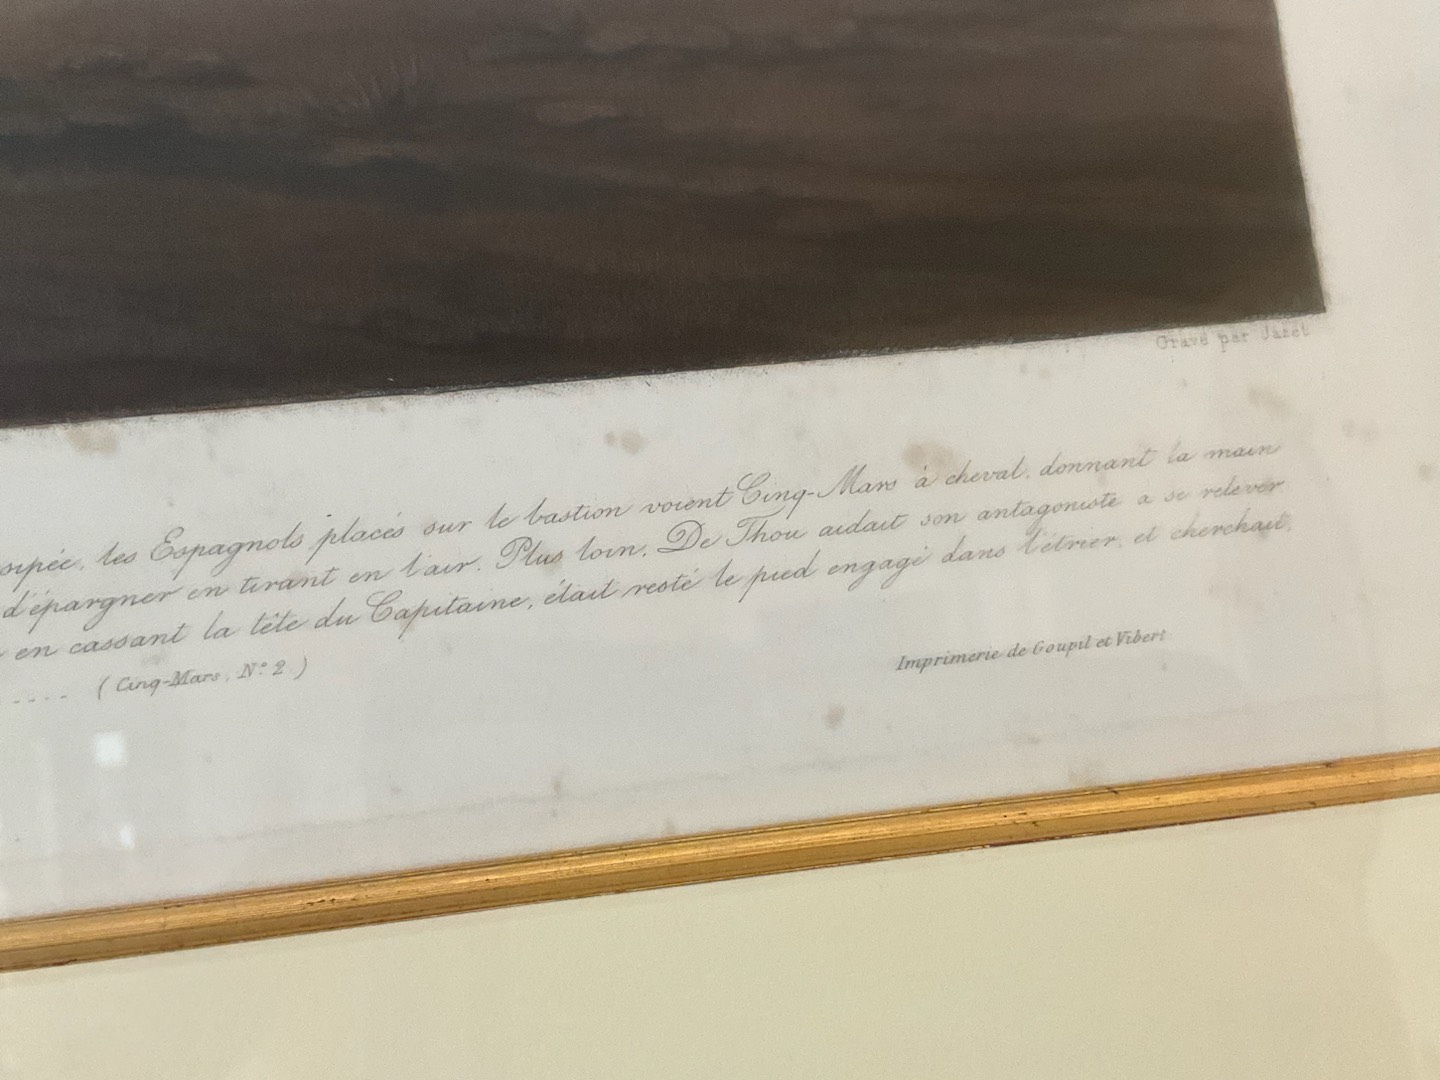 Gravé par Jazet
les Espagnols placés sur le bastion voient Cinq-Mars à cheval, donnant la main
d'épargner en tirant en l'air. Plus loin, De Thou aidait son antagoniste a se relever
en cassant la tête du Capitaine, était resté le pied engagé dans l'étrier, et cherchait,
.... (Cinq-Mars, N.º 2.)
Imprimerie de Goupil et Vibert